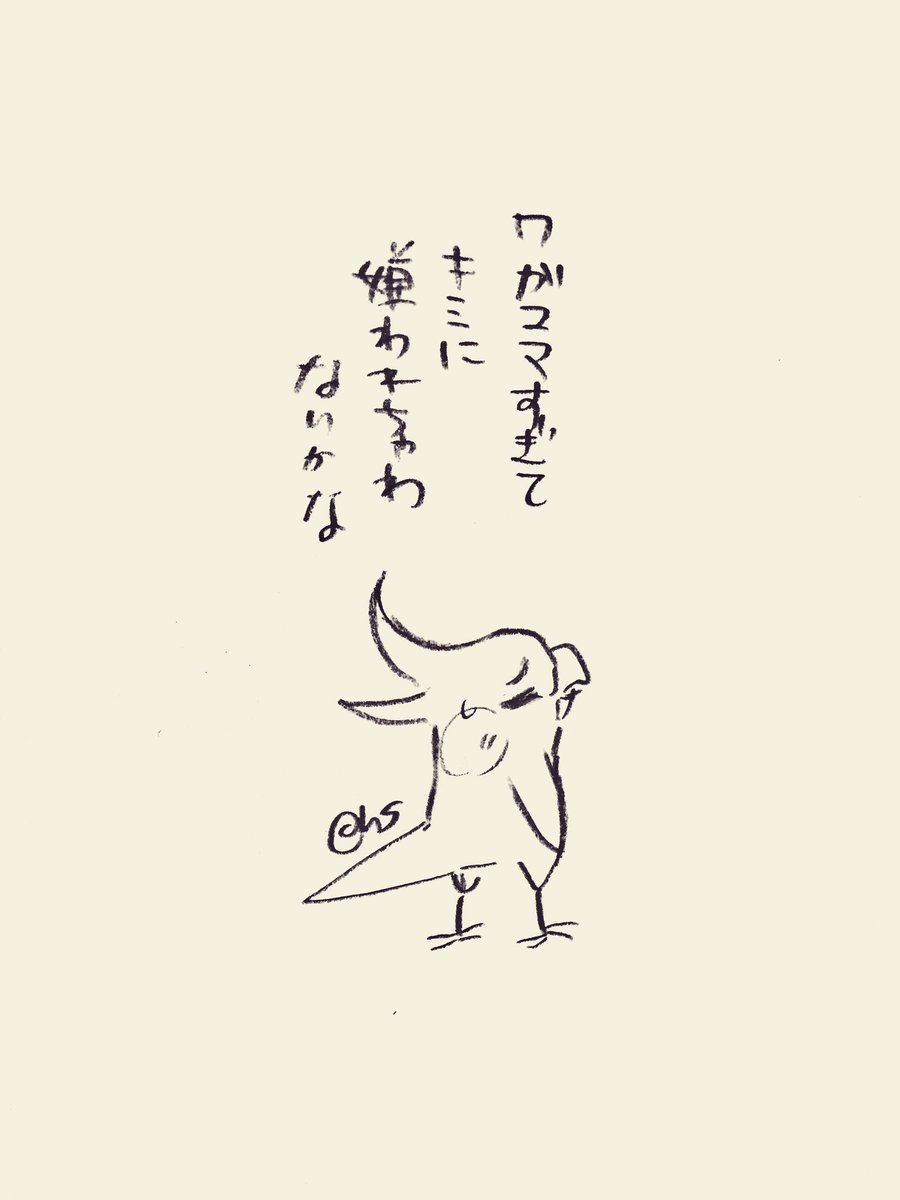 ワがママすぎて
キミに
嫌われちゃわ
ないかな
@hs